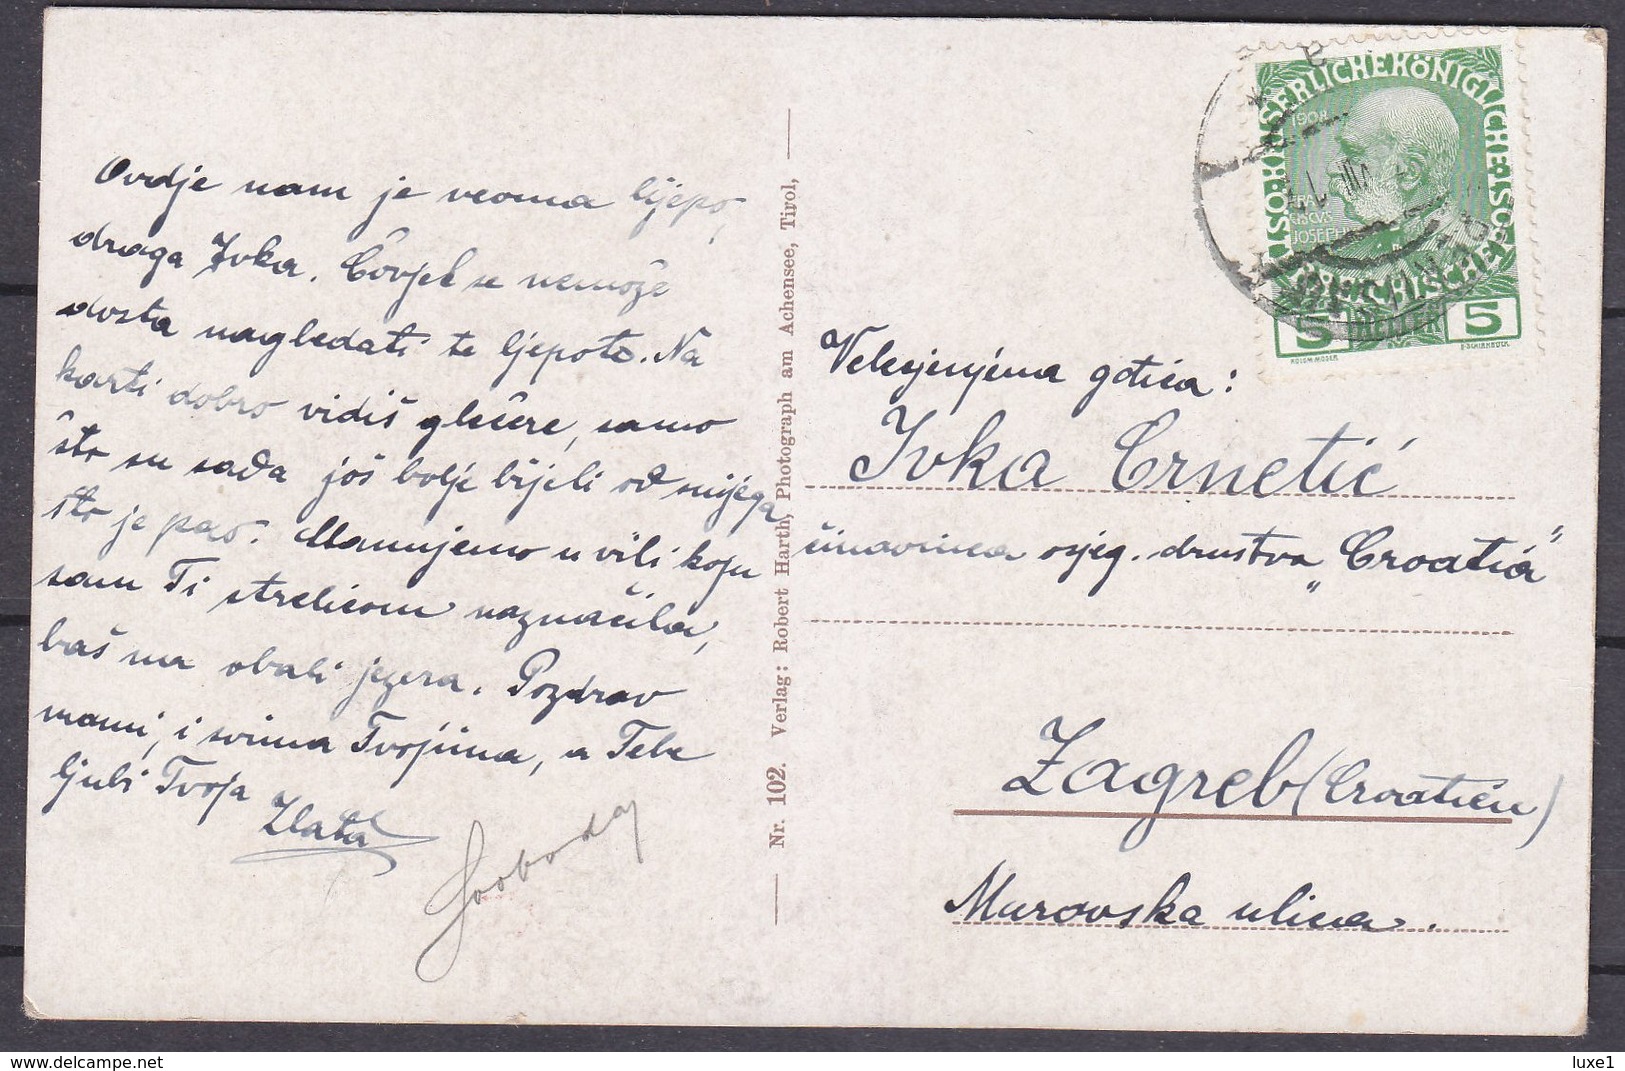 Ovdje nam je veoma lijepo,
draga Ivka. Čovjek se nemože
dosta nagledati te ljepote. Na
karti dobro vidiš glečere, samo
što su sada još bolje bijeli od snijega
što je pao. Stanujemo u vili koju
sam Ti strelicom naznačila,
baš na obali jezera. Pozdrav
mami, i svima Tvojima, a Tebe
ljubi Tvoja
Zlata
Svoboda
Nr. 102. Verlag: Robert Harth, Photograph am Achensee, Tirol,
KAISERLICHE KÖNIGLICHE ÖSTERREICHISCHE
1908
JOSEPH I
5 HELLER 5
KOLOM. MOSER
F. SCHIRNBÖCK
Velecjenjena gotica:
Ivka Crnetić
činovnica osjeg. društva „Croatia"
Zagreb (Croatien)
Marovska ulica.
delcampe.net
luxe1